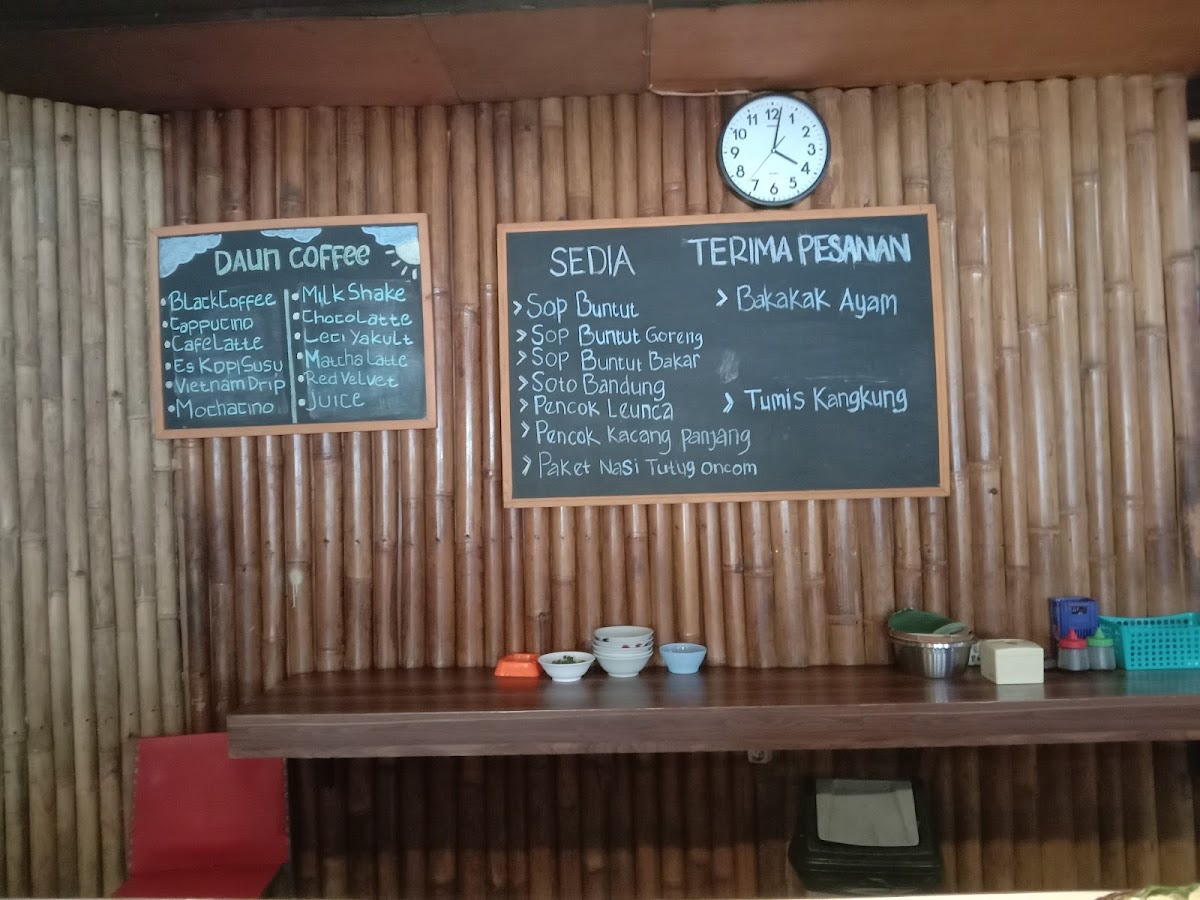 DAUN COFFEE
BLack Coffee
Cappucino
CafeLatte
Es Kopi Susu
Vietnam Drip
Mochacino
Milk Shake
ChocoLatte
Leci Yakult
Matcha Latte
Red Velvet
Juice
SEDIA
> Sop Buntut
> Sop Buntut Goreng
> Sop Buntut Bakar
> Soto Bandung
> Pencok Leunca
> Pencok Kacang Panjang
> Paket Nasi Tutug oncom
TERIMA PESANAN
> Bakakak Ayam
> Tumis Kangkung
12
1
2
3
4
5
6
7
8
9
10
11